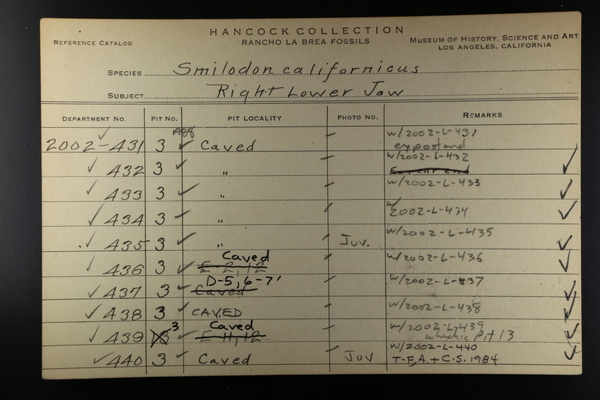 HANCOCK COLLECTION
REFERENCE CATALOG RANCHO LA BREA FOSSILS MUSEUM OF HISTORY, SCIENCE AND ART
LOS ANGELES, CALIFORNIA
SPECIES Smilodon californicus
SUBJECT Right Lower Jaw
DEPARTMENT NO. PIT NO. PIT LOCALITY PHOTO NO. REMARKS
2002-431 3 Caved w/2002-L-431
432 3 " w/2002-L-432
433 3 " w/2002-L-433
434 3 " w/2002-L-434
435 3 " Juv. w/2002-L-435
436 3 Caved E-2, 12 w/2002-L-436
437 3 D-5, 6-7' Caved w/2002-L-437
438 3 CAVED w/2002-L-438
439 3 Caved E-11, 12 w/2002-L-439
which is Pit 13
440 3 Caved Juv w/2002-L-440
T-E,A + C.S. 1984